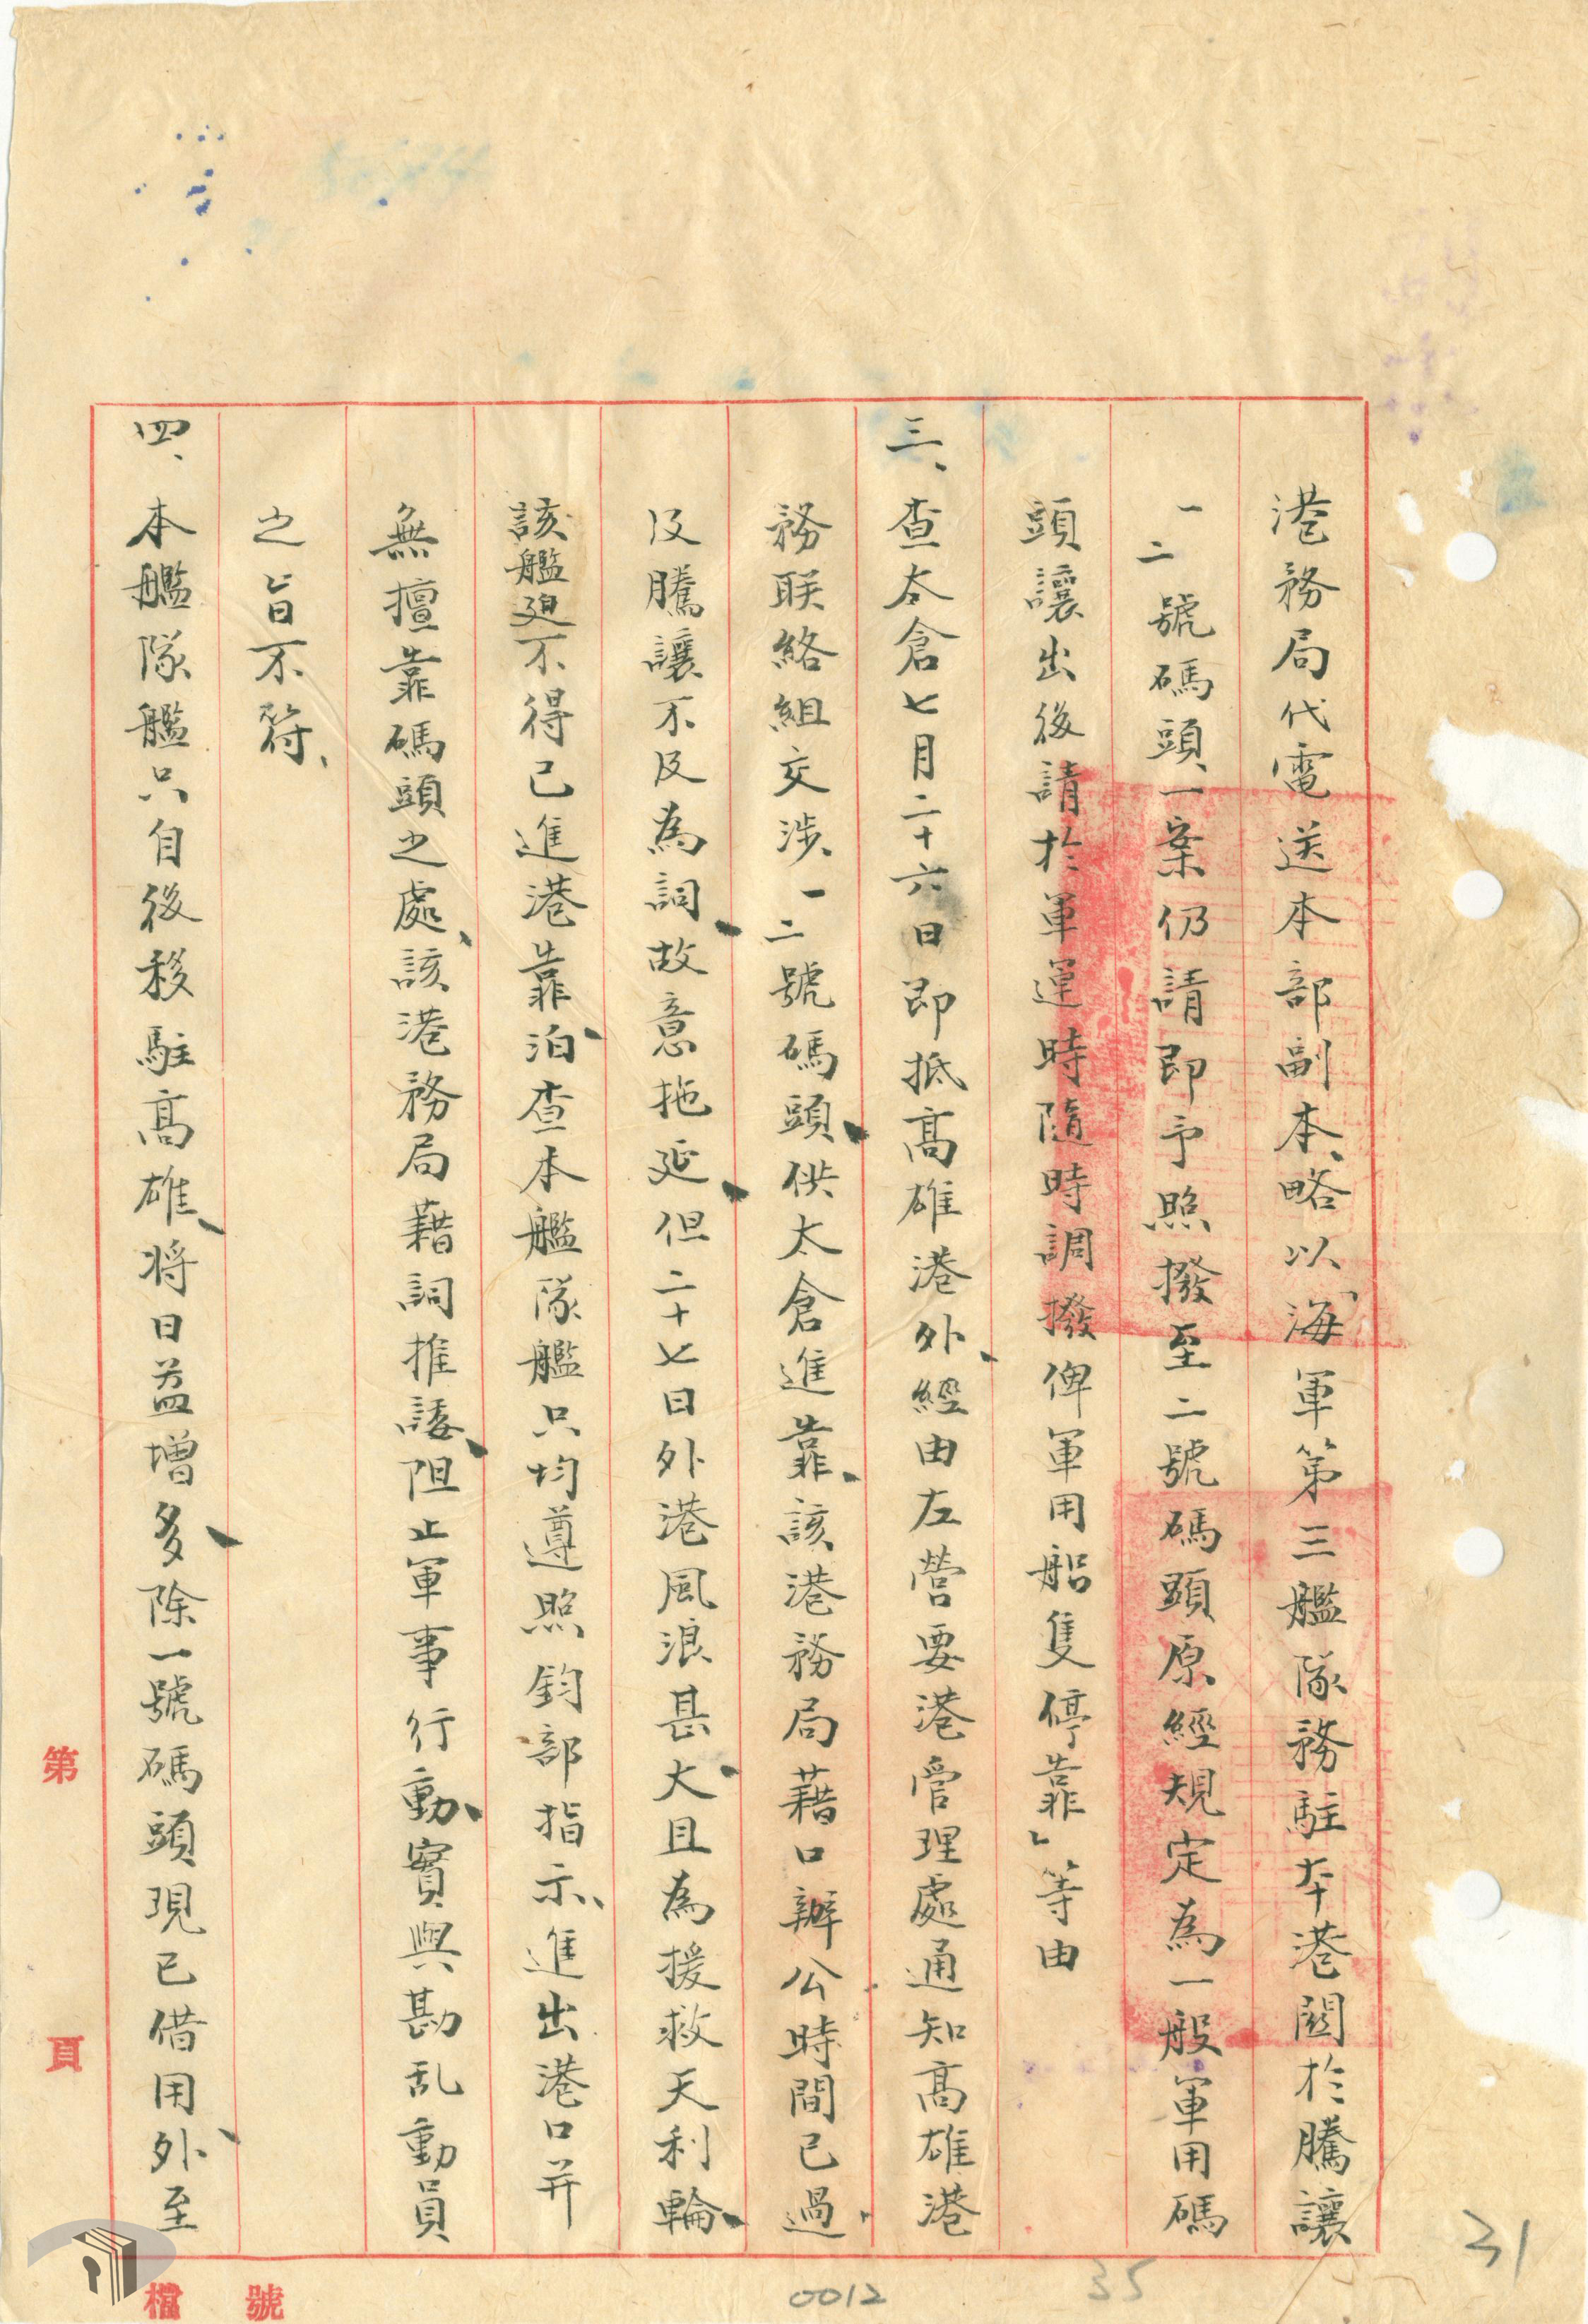 港務局代電送本部副本、略以「海軍第三艦隊務駐本港關於騰讓
一二號碼頭一案仍請即予照撥至二號碼頭原經規定為一般軍用碼
頭讓出後請於軍運時隨時調撥俾軍用船隻停靠」等由
三、查太倉七月二十六日即抵高雄港外、經由左營要港管理處通知高雄港
務联絡組交涉一二號碼頭、供太倉進靠、該港務局藉口辦公時間已過
及騰讓不及為詞、故意拖延、但二十七日外港風浪甚大、且為援救天利輪、
該艦廹不得已進港靠泊、查本艦隊艦只均遵照鈞部指示、進出港口并
無擅靠碼頭之處、該港務局藉詞推諉、阻止軍事行動、實與勘乱動員
之旨不符、
四、本艦隊艦只自後移駐高雄、将日益增多、除一號碼頭現已借用外、至
第
頁
檔
號
0012
35
31